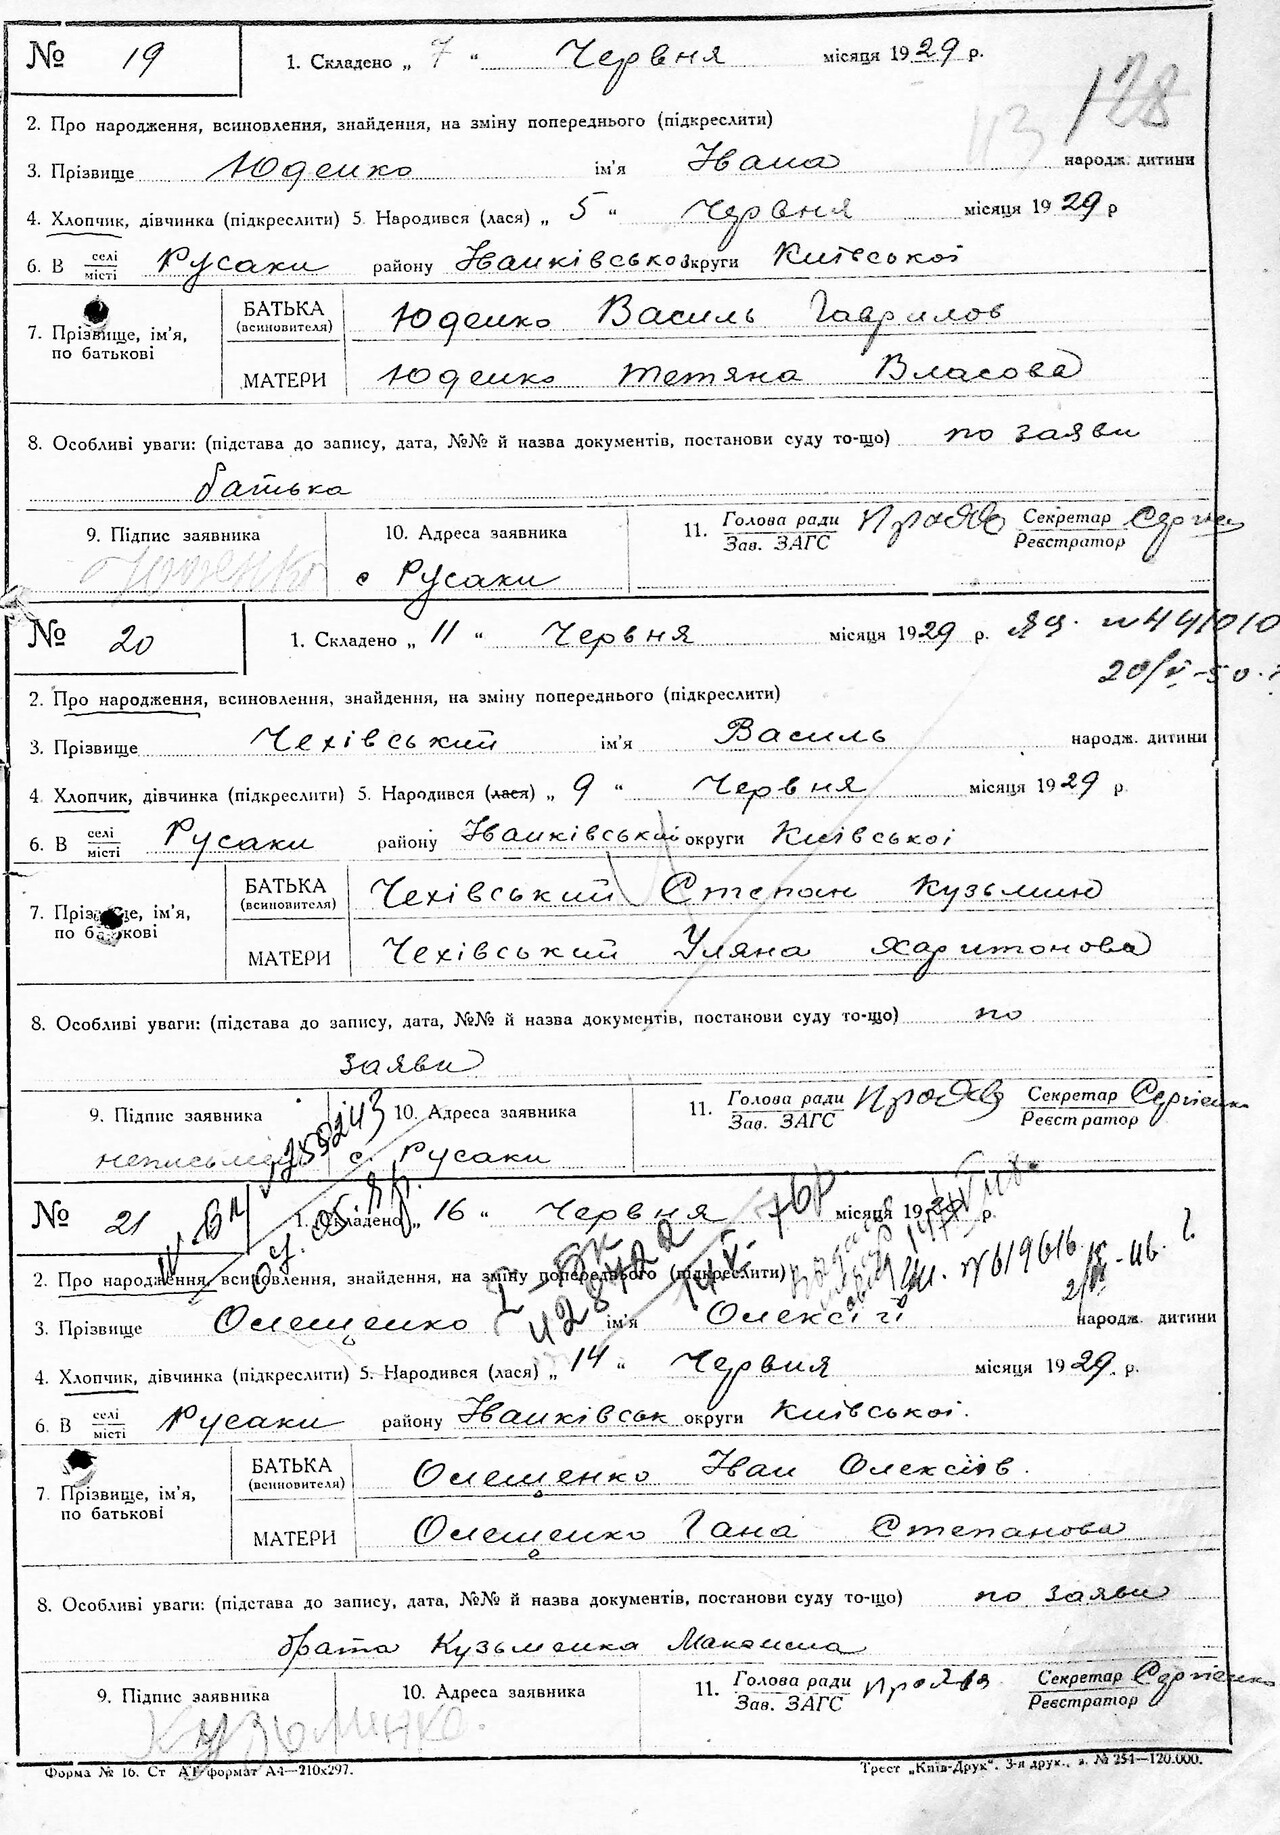 № 19 1. Складено „ 7 “ Червня місяця 1929 р.
128
113
2. Про народження, всиновлення, знайдення, на зміну попереднього (підкреслити)
3. Прізвище Юденко ім'я Івана народж. дитини
4. Хлопчик, дівчинка (підкреслити) 5. Народився (лася) „ 5 “ Червня місяця 1929 р
6. В селі/місті Русаки району Іванківсько округи Київської
7. Прізвище, ім'я, по батькові
БАТЬКА (всиновителя) Юденко Василь Гаврилов
МАТЕРИ Юденко Тетяна Власова
8. Особливі уваги: (підстава до запису, дата, №№ й назва документів, постанови суду то-що) по заяви
батька
9. Підпис заявника 10. Адреса заявника 11. Голова ради/Зав. ЗАГС Секретар/Реєстратор
Юденко с Русаки
№ 20 1. Складено „ 11 “ Червня місяця 1929 р.
2. Про народження, всиновлення, знайдення, на зміну попереднього (підкреслити)
3. Прізвище Чехівський ім'я Василь народж. дитини
4. Хлопчик, дівчинка (підкреслити) 5. Народився (лася) „ 9 “ Червня місяця 1929 р.
6. В селі/місті Русаки району Іванківський округи Київської
7. Прізвище, ім'я, по батькові
БАТЬКА (всиновителя) Чехівський Степан Кузьмин
МАТЕРИ Чехівський Уляна Харитонова
8. Особливі уваги: (підстава до запису, дата, №№ й назва документів, постанови суду то-що) по
заяви
9. Підпис заявника 10. Адреса заявника 11. Голова ради/Зав. ЗАГС Секретар/Реєстратор Сергієнко
с. Русаки
№ 21 1. Складено „ 16 “ Червня місяця 1929 р.
2. Про народження, всиновлення, знайдення, на зміну попереднього (підкреслити)
№619616
3. Прізвище Олещенко ім'я Олексій народж. дитини
4. Хлопчик, дівчинка (підкреслити) 5. Народився (лася) „ 14 “ Червня місяця 1929. р.
6. В селі/місті Русаки району Іванківськ округи Київської.
7. Прізвище, ім'я, по батькові
БАТЬКА (всиновителя) Олещенко Іван Олексіїв.
МАТЕРИ Олещенко Гана Степанова
8. Особливі уваги: (підстава до запису, дата, №№ й назва документів, постанови суду то-що) по заяви
брата Кузьменка Максима
9. Підпис заявника 10. Адреса заявника 11. Голова ради/Зав. ЗАГС Секретар/Реєстратор Сергієнко
Кузьменко.
Форма № 16. Ст АТ формат А4—210х297. Трест „Київ-Друк“. 3-я друк., з. № 254—120.000.